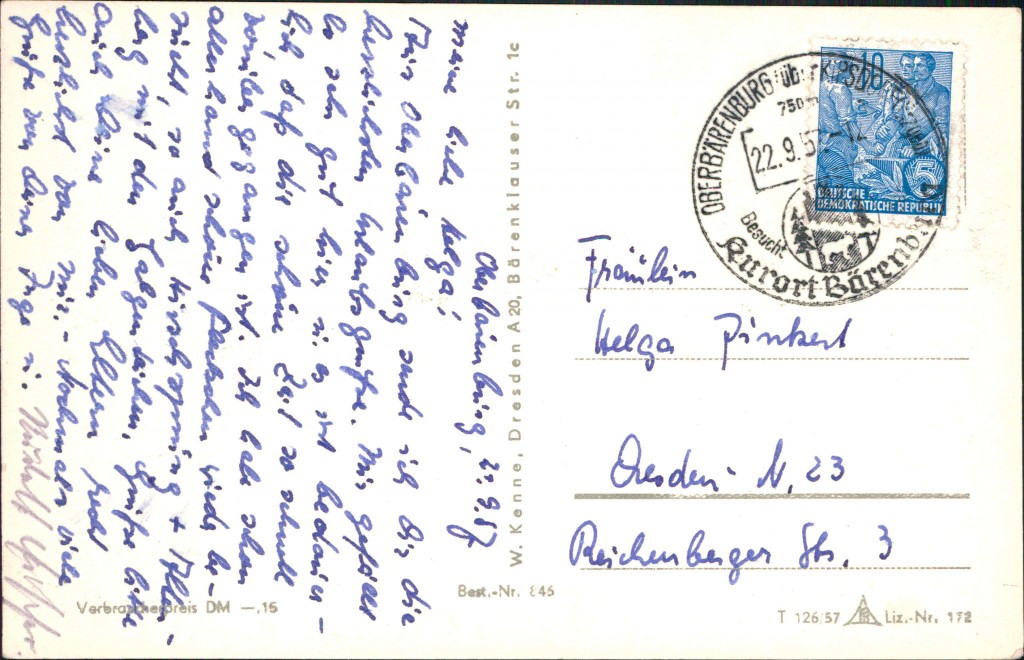 Oberbärenburg, 22.9.57
meine liebe Helga!
Aus Oberbärenburg sende ich Dir die
herzlichsten Urlaubsgrüße. Mir gefällt
es sehr gut hier u. es ist bedauer-
lich, daß die schöne Zeit so schnell
vorüber gegangen ist. Ich habe schon
allerhand schöne Flecken wieder be-
sucht, so auch Hirschsprung +
mit den Galgenteichen. Grüße bitte
auch Deine lieben Eltern recht
herzlichst von mir. – Nochmals viele
Grüße von Deiner Inge u.
W. Kenne, Dresden A20, Bärenklauser Str. 1c
Verbraucherpreis DM —,15
Best.-Nr. 846
OBERBÄRENBURG über KIPSDORF
750 m
22.9.57
Besucht
Kurort Bärenburg
10
5
DEUTSCHE
DEMOKRATISCHE REPUBLIK
Fräulein
Helga Pinkert
Dresden N. 23
Reichenberger Str. 3
T 126/57
Liz.-Nr. 172